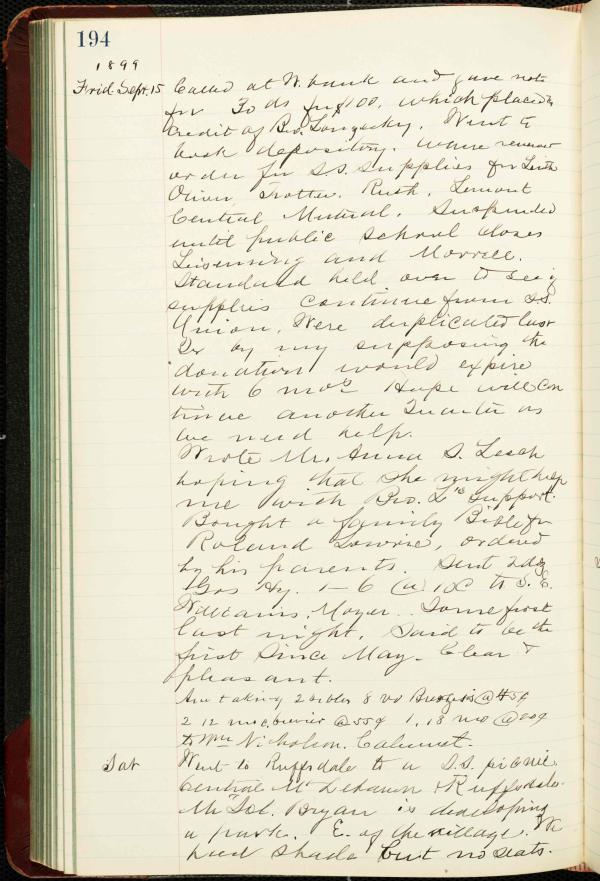 194
1899
Frid. Sept. 15 Called at N. bank and gave note
for 30 ds for $100. which placed to
credit of Bro. Longacky. Went to
book depository. where renewed
order for S.S. supplies for Leith
Oliver, Trotter. Rush. Lemont
Central Mutual. Suspended
until public school closes
Leisenring and Morrell.
Standard held over to see if
supplies continue from S.S.
Union. Were duplicated last
Qr by my supposing the
donation would expire
with 6 mos Hope will con
tinue another Quarter as
we need help.
Wrote Mr. Anna S. Leech
hoping that she might help
me with Bro. L's support.
Bought a family Bible for
Roland Lowrie, ordered
by his parents. Sent 2 dz
Gos Hy. 1-6 @ 10c to S. E.
Williams, Moyer. Some frost
last night. Said to be the
first since May. Clear &
pleasant.
Am taking 2 bibles 8 vo @ 45¢
2 12 mo @ 55¢ 1, 18 mo @ 20¢
to Wm Nicholson. Calumet.
Sat Went to Ruffsdale to a S.S. picnic
Central Mt Lebanon & Ruffsdale.
Mr Sol. Bryan is developing
a park. E. of the village. We
had shade but no seats.